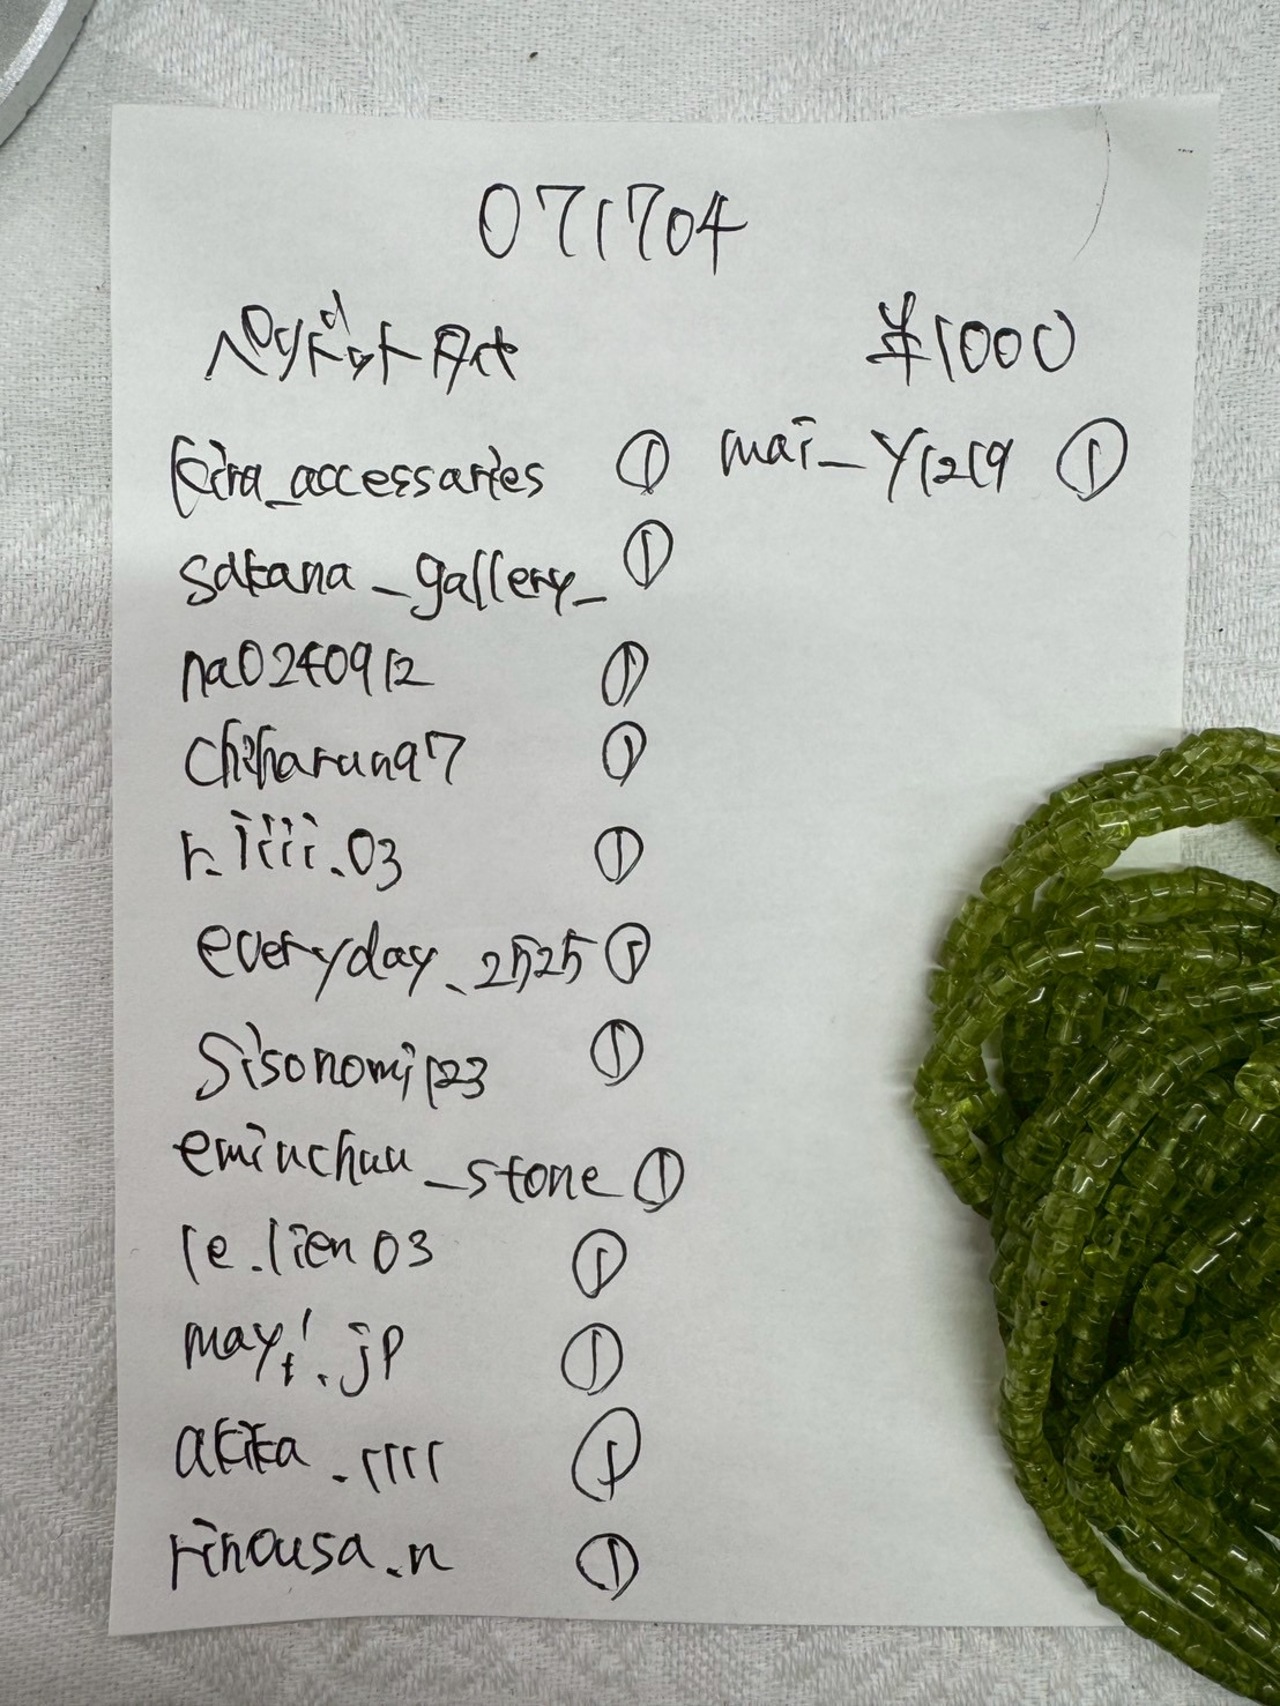 071704
ペリドット ¥1000
kira_accessaries ①
mai_y1219 ①
sakana_gallery_ ①
na0240912 ①
chiharun97 ①
r.iiii.03 ①
everyday_2525 ①
sisonomi123 ①
emiuchuu_stone ①
le.lien03 ①
①
akika_1111 ①
rinousa.n ①